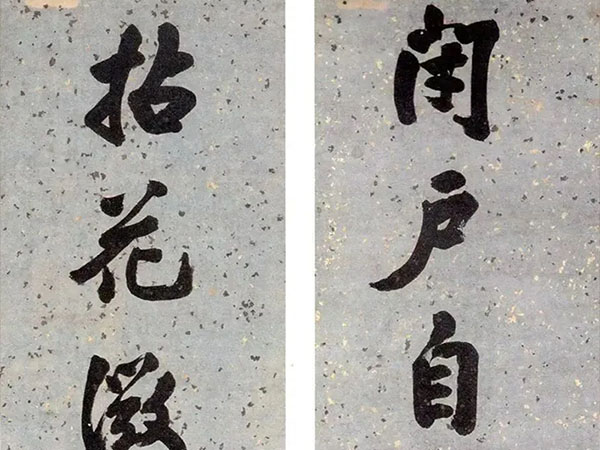 閉户自
拈花微